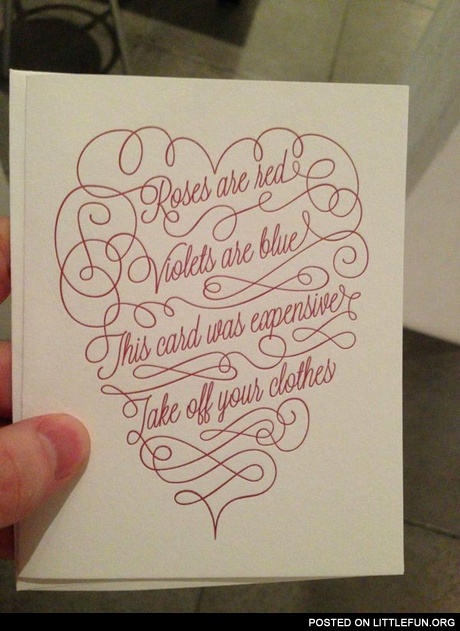 Roses are red
Violets are blue
This card was expensive
Take off your clothes
POSTED ON LITTLEFUN.ORG